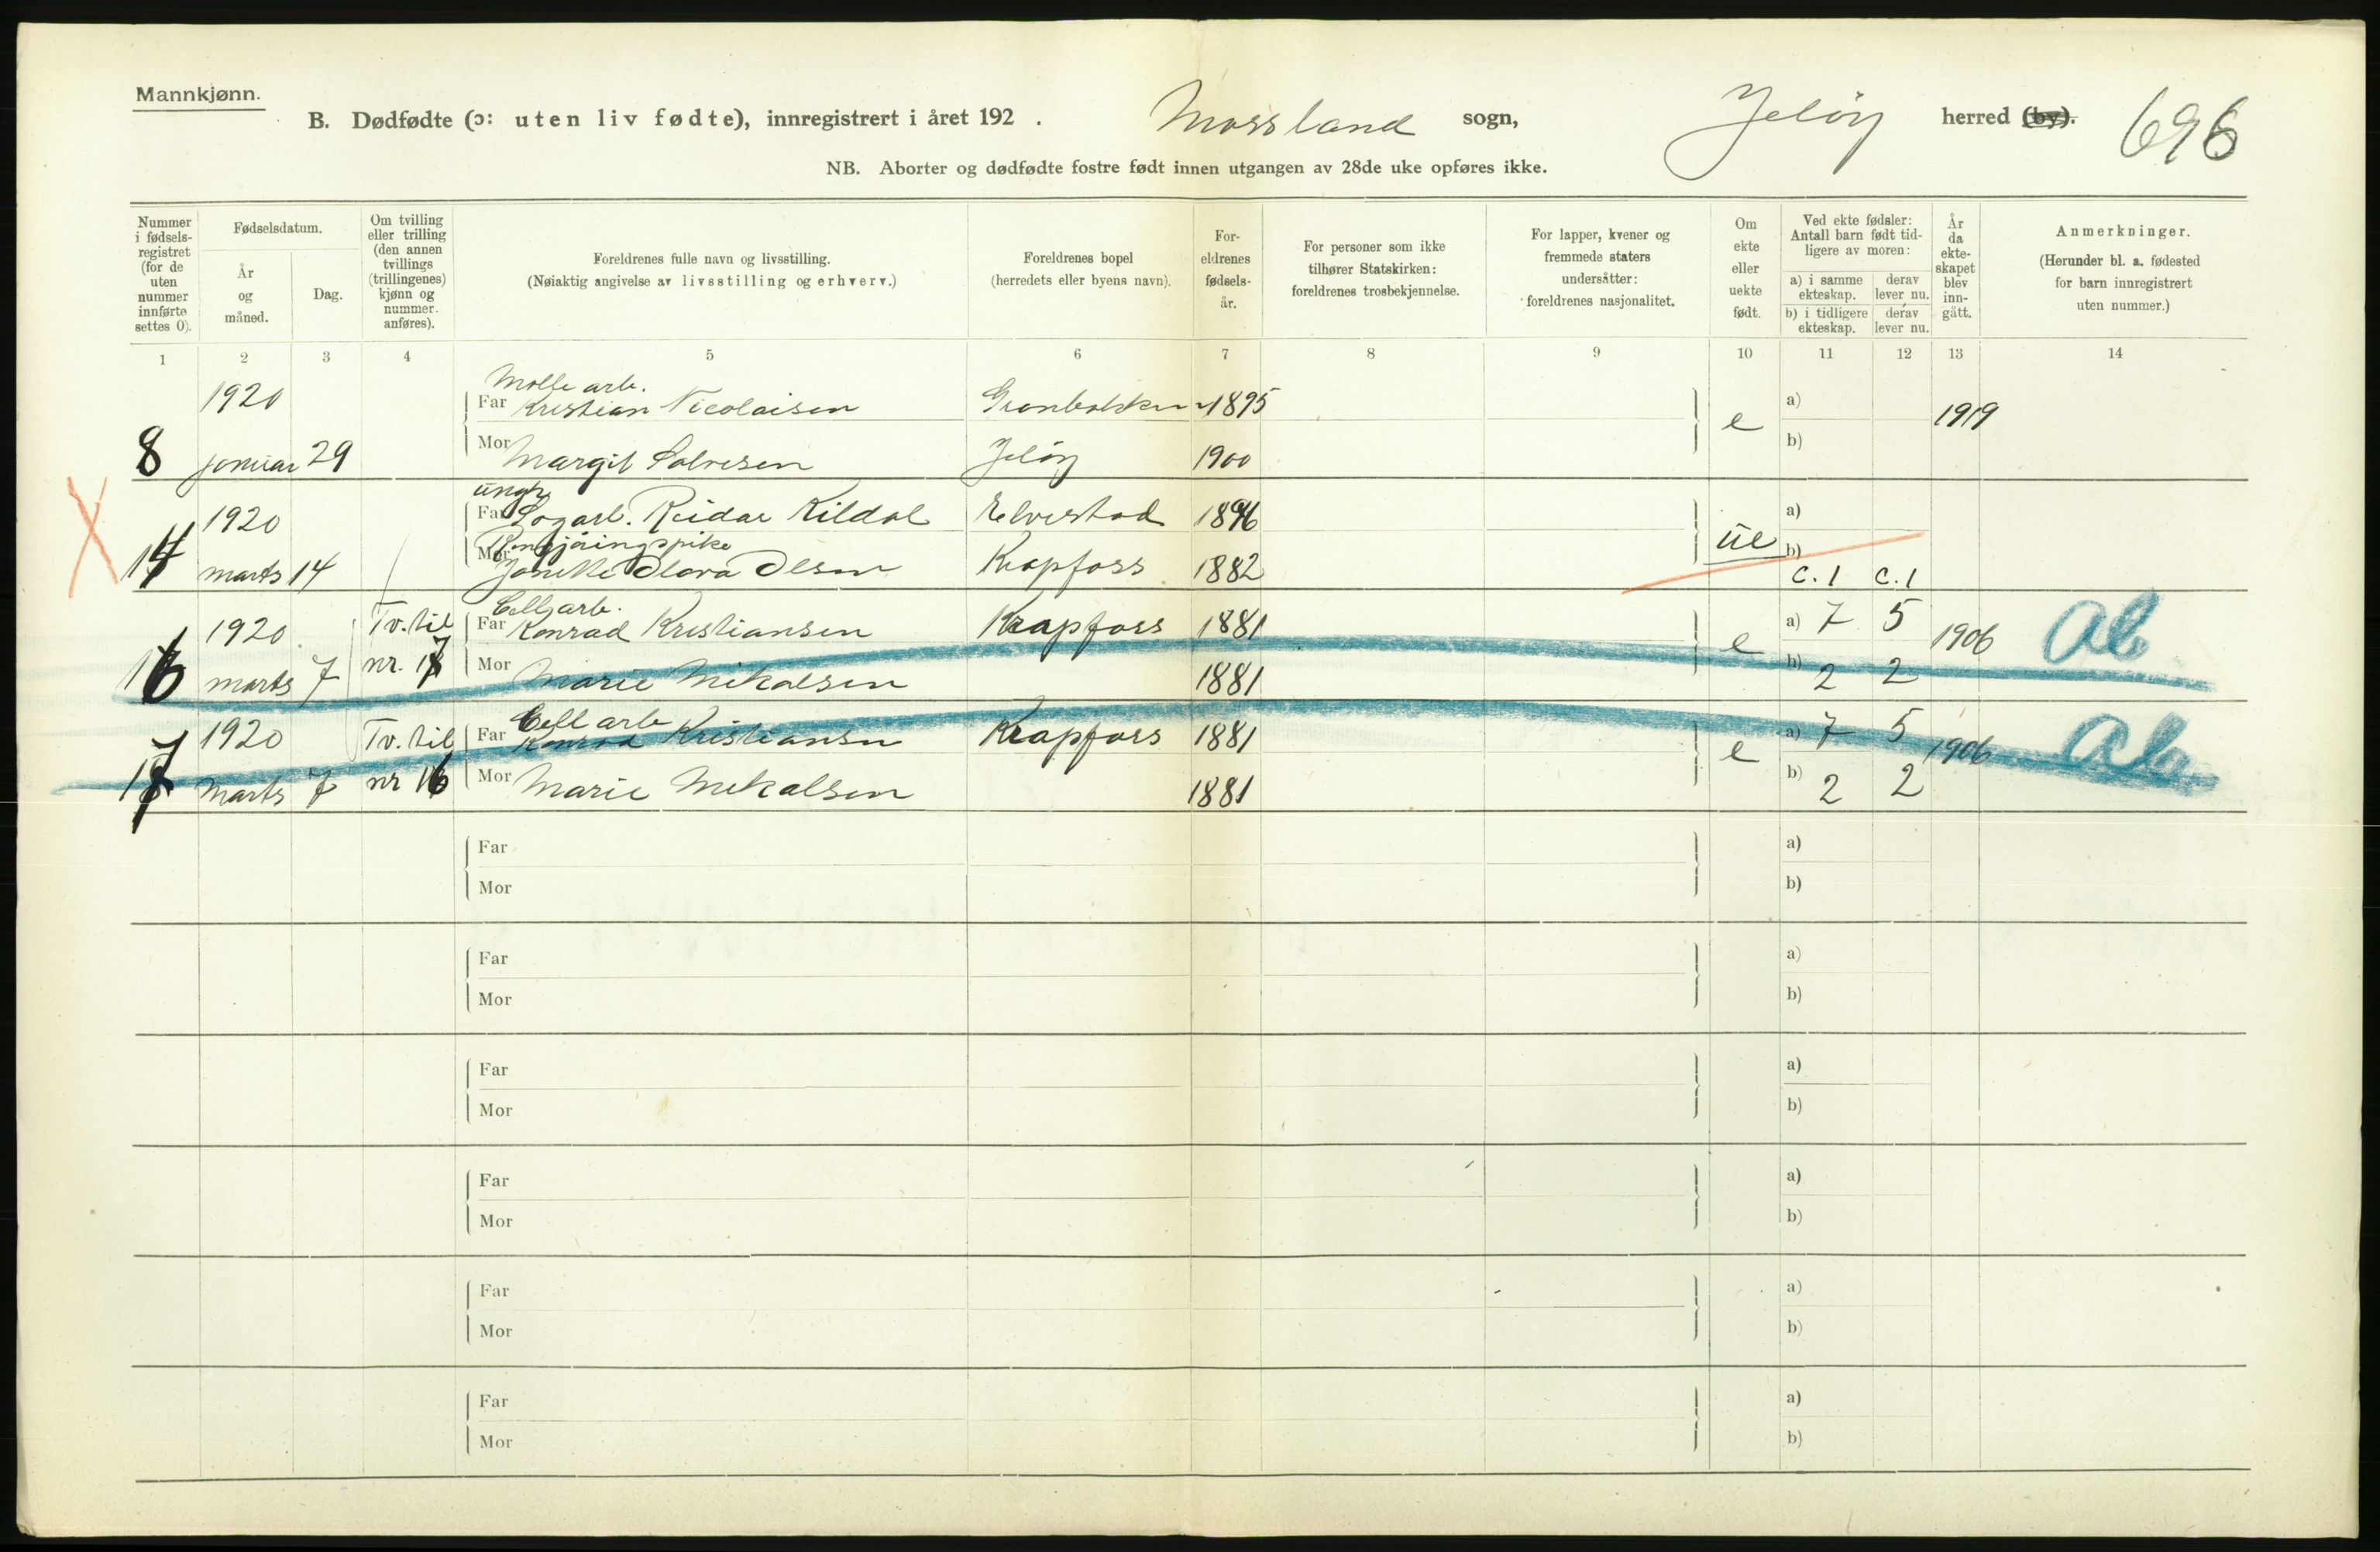 Mannkjønn.
B. Dødfødte (ɔ: uten liv fødte), innregistrert i året 192 . Mossland sogn, Jeløy herred (by). 696
NB. Aborter og dødfødte fostre født innen utgangen av 28de uke opføres ikke.
Nummer i fødselsregistret (for de uten nummer innførte settes 0).
Fødselsdatum.
År og måned.
Dag.
Om tvilling eller trilling (den annen tvillings (trillingenes) kjønn og nummer anføres).
Foreldrenes fulle navn og livsstilling.
(Nøiaktig angivelse av livsstilling og erhverv.)
Foreldrenes bopel
(herredets eller byens navn).
Foreldrenes fødselsår.
For personer som ikke tilhører Statskirken: foreldrenes trosbekjennelse.
For lapper, kvener og fremmede staters undersåtter: foreldrenes nasjonalitet.
Om ekte eller uekte født.
Ved ekte fødsler: Antall barn født tidligere av moren:
a) i samme ekteskap. derav lever nu.
b) i tidligere ekteskap. derav lever nu.
År da ekteskapet blev inngått.
Anmerkninger.
(Herunder bl. a. fødested for barn innregistrert uten nummer.)
1 2 3 4 5 6 7 8 9 10 11 12 13 14
Mølle arb.
1920 Far Kristian Nicolaisen 1895 e a) 1919
8 januar 29 Mor Margit Salvesen Jeløy 1900 b)
ungk
1920 Far Sagarb. Reidar Kildal Elvestad 1896 ue a)
Rengjøringspike
14 marts 14 Mor Olava Olsen Krapfoss 1882 b) c. 1 c. 1
Cellarb.
1920 Tv. til Far Konrad Kristiansen Krapfoss 1881 e a) 7 5 1906 Ab
16 marts 7 nr. 17 Mor Marie Mikalsen 1881 b) 2 2
Cell arb
1920 Tv. til Far Konrad Kristiansen Krapfoss 1881 e a) 7 5 1906 Ab
17 marts 7 nr 16 Mor Marie Mikalsen 1881 b) 2 2
Far a)
Mor b)
Far a)
Mor b)
Far a)
Mor b)
Far a)
Mor b)
Far a)
Mor b)
Far a)
Mor b)